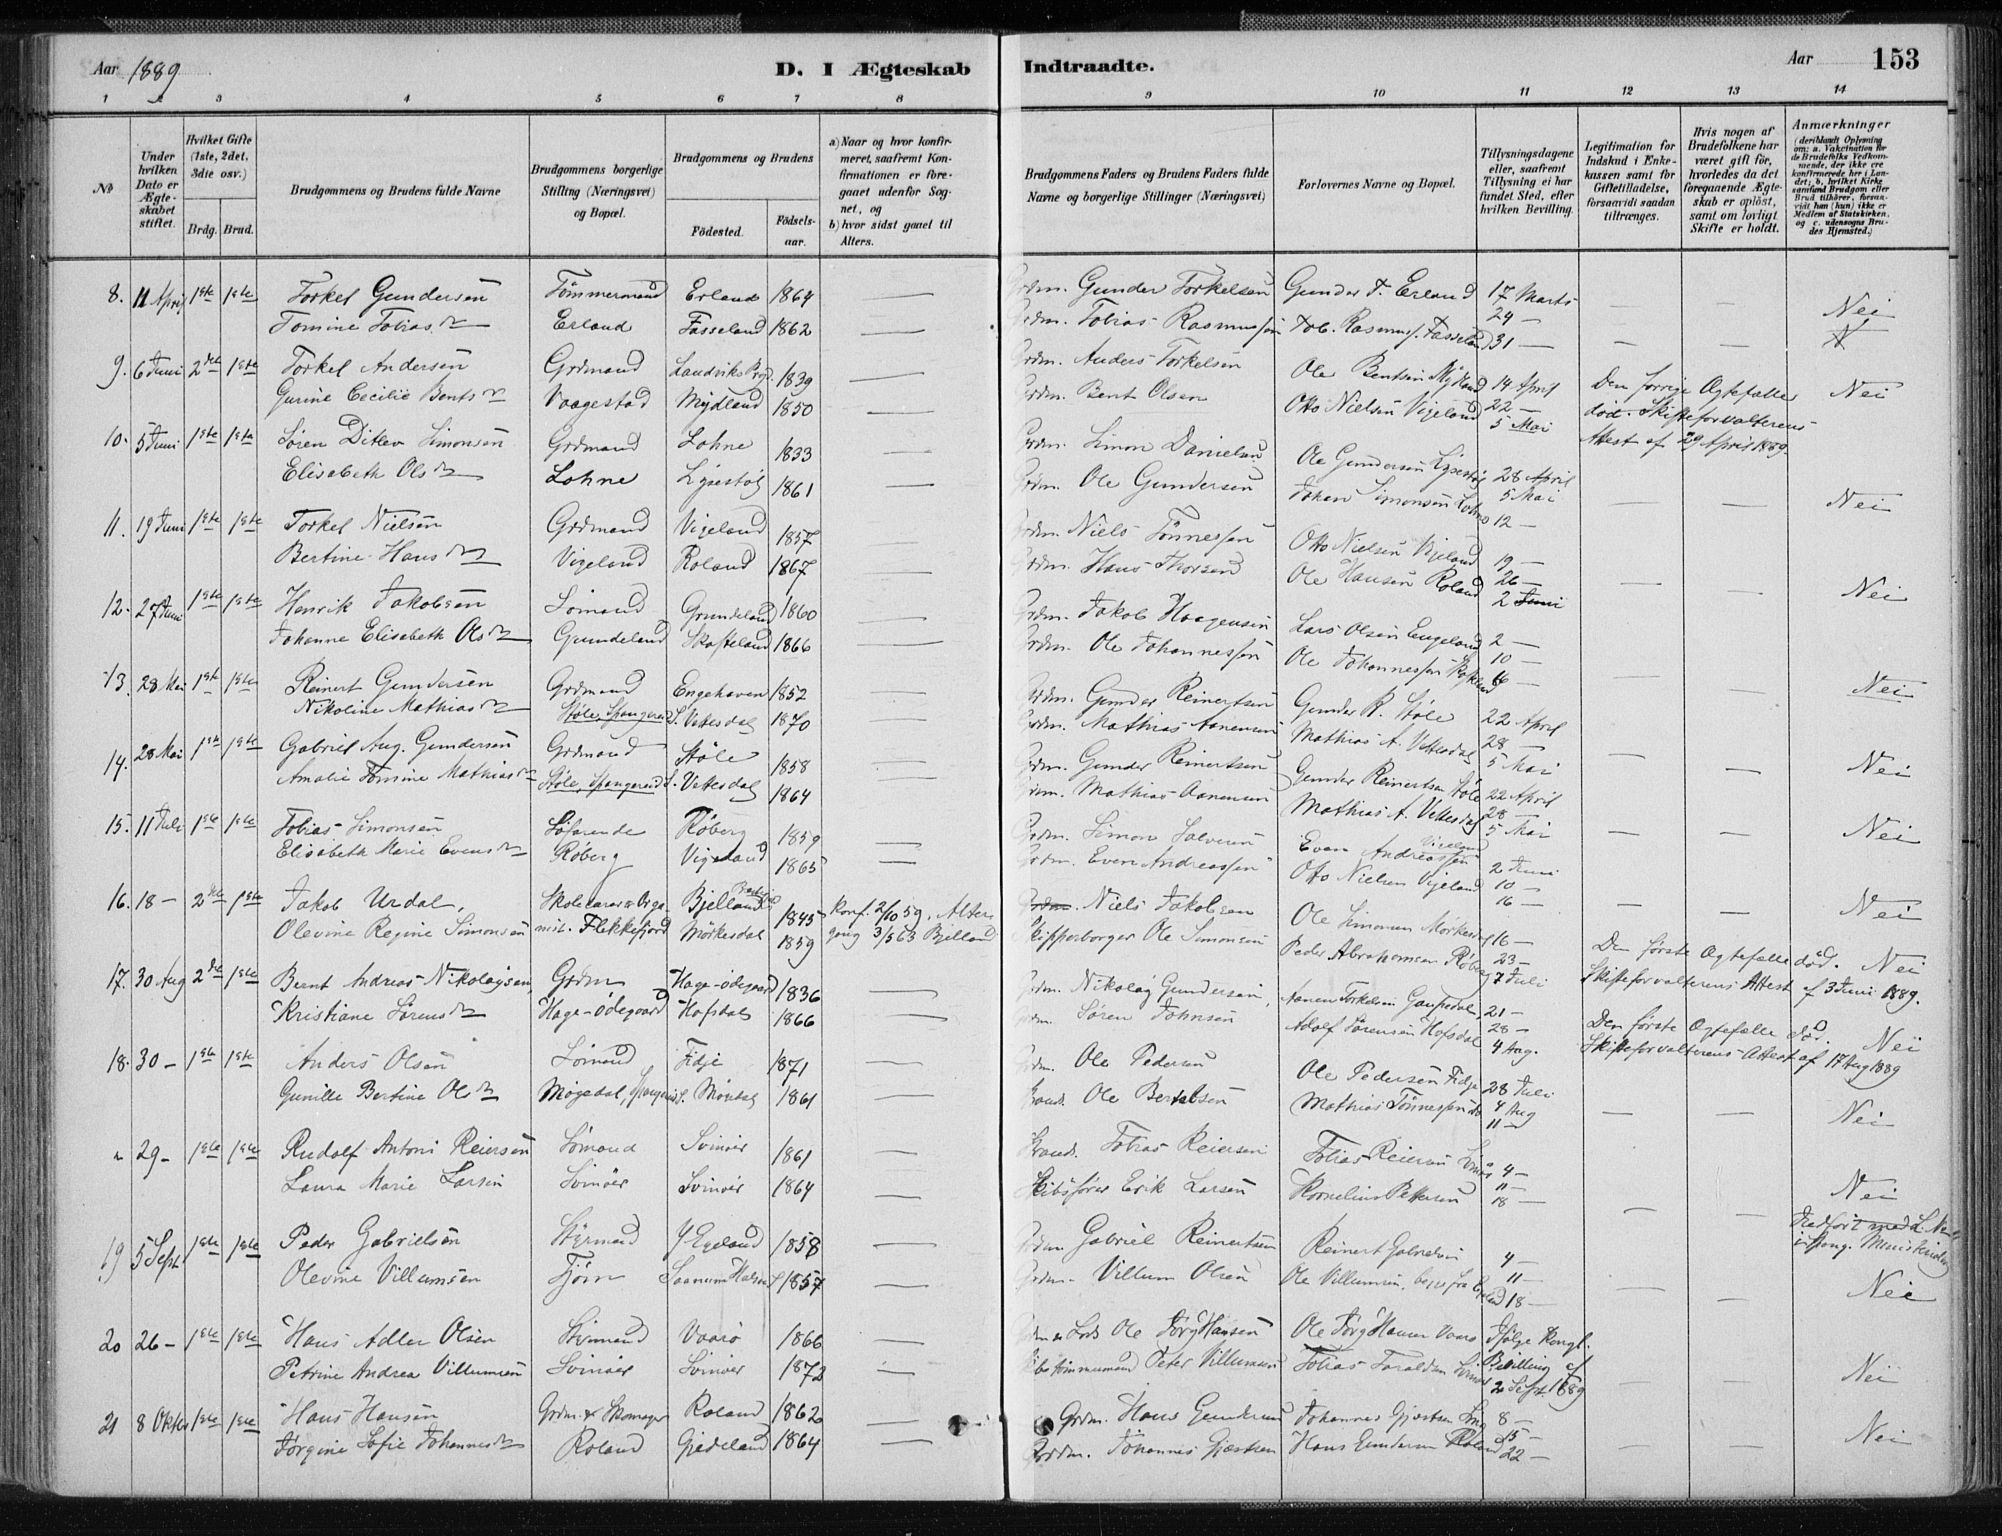 Aar 1889
D. I Ægteskab
Indtraadte.
Aar
153
1 2 3 4 5 6 7 8 9 10 11 12 13 14
No
Under hvilken Dato er Ægteskabet stiftet.
Hvilket Gifte (1ste, 2det, 3die osv.)
Brdg. Brud.
Brudgommens og Brudens fulde Navne
Brudgommens borgerlige Stilling (Næringsvei) og Bopæl.
Brudgommens og Brudens
Fødested.
Fødselsaar.
a) Naar og hvor konfirmeret, saafremt Konfirmationen er foregaaet udenfor Sognet, og
b) hvor sidst gaaet til Alters.
Brudgommens Faders og Brudens Faders fulde Navne og borgerlige Stillinger (Næringsvei)
Forlovernes Navne og Bopæl.
Tillysningsdagene eller, saafremt Tillysning ei har fundet Sted, efter hvilken Bevilling.
Legitimation for Indskud i Enkekassen samt for Giftetilladelse, forsaavidt saadan tiltrænges.
Hvis nogen af Brudefolkene har været gift før, hvorledes da det foregaaende Ægteskab er opløst, samt om lovligt Skifte er holdt.
Anmærkninger (deriblandt Oplysning om: a. Vakcination for de Brudefolks Vedkommende, der ikke ere konfirmerede her i Landet; b. hvilket Kirkesamfund Brudgom eller Brud tilhører, forsaavidt han (hun) ikke er Medlem af Statskirken, og c. udensogns Brudes Hjemsted.)
8. 11 April 1ste 1ste Torkel Gundersen Tømmermand Erland 1864 — Grdm. Gunder Torkelsen Gunder T. Erland 17 Marts — — Nei
Tomine Tobiasd. Erland Fasseland 1862 — Grdm. Tobias Rasmussen Tob. Rasmuss. Fasseland 24 — 31 —
9. 6 Juni 2det 1ste Torkel Andersen Grdmand Landviks Prgj. 1839 — Grdm. Anders Torkelsen Ole Bentsen Mydland 14 April Den forrige Ægtefælle Nei
Gurine Cecilie Bentsd. Vaagestad Mydland 1850 — Grdm. Bent Olsen Otto Nielsen Vigeland 22 — 5 Mai død. Skifteforvalterens Attest af 29 April 1889.
10. 5 Juni 1ste 1ste Søren Ditlev Simonsen Grdmand Lohne 1833 — Grdm. Simon Danielsen Ole Gundersen Ligestøl 28 April
Elisabeth Olsd. Lohne Ligestøl 1861 — Grdm. Ole Gundersen Johan Simonsen Lohne 5 Mai 12 — — — Nei
11. 19 Juni 1ste 1ste Torkel Nielsen Grdmand Vigeland 1857 — Grdm. Niels Tønnessen Otto Nielsen Vigeland 19 —
Bertine Hansd. Vigeland Roland 1867 — Grdm. Hans Thorsen Ole Hansen Roland 26 — 2 Juni — — Nei
12. 27 Juni 1ste 1ste Henrik Jakobsen Sømand Grundeland 1860 — Grdm. Jakob Haagensen Lars Olsen Engeland 2 —
Johanne Elisabeth Olsd. Gundeland Skofteland 1866 — Grdm. Ole Johannessen Ole Johannessen 10 — — — Nei
13. 28 Mai 1ste 1ste Reinert Gundersen Grdmand Engehaven 1852 — Grdm. Gunder Reinertsen Gunder R. Støle 22 April
Nikoline Mathiasd. Støle, Spangereid S. Vittesdal 1870 — Grdm. Mathias Aanensen Mathias A. Vittesdal 28 — 5 Mai — — Nei
14. 28 Mai 1ste 1ste Gabriel Aug. Gundersen Grdmand Støle 1858 — Grdm. Gunder Reinertsen Gunder Reinertsen Støle 22 April
Amalie Tomine Mathiasd. Støle, Spangereid S. Vittesdal 1864 — Grdm. Mathias Aanensen Mathias A. Vittesdal 28 — 5 Mai — — Nei
15. 11 Juli 1ste 1ste Tobias Simonsen Søfarende Røberg 1859 — Grdm. Simon Salvesen Even Andreassen Vigeland 2 Juni
Elisabeth Marie Evensd. Røberg Vigeland 1865 — Grdm. Even Andreassen Otto Nielsen Vigeland 10 — 16 — — — Nei
16. 18 — 2det 1ste Jakob Urdal, Skolelærer & Orga- Bjelland 1845 Konf. 2/10 59. Alter- Niels Jakobsen Ole Simonsen Mørkesdal 16 — Den første Ægtefælle død. Nei
Olevine Regine Simonsen nist. Flekkefjord Mørkesdal 1859 gang 3/5 63 Bjelland Skipperborger Ole Simonsen Peder Abrahamsen Røberg 23 — 7 Juli Skifteforvalterens Attest af 3 Juni 1889.
17. 30 Aug 2det 1ste Bernt Andreas Nikolaysen, Grdm Hage-ødegaard 1836 — Grdm. Nikolay Gundersen, Aanen Torkelsen Gaupedal 21 — Den første Ægtefælle død. Nei
Kristiane Sørensd. Hage-Ødegaard Hofsdal 1866 — Grdm. Søren Johnsen Adolf Sørensen Hofsdal 28 — 4 Aug. Skifteforvalterens Attest af 17 Aug 1889
18. 30 — 1ste 1ste Anders Olsen Sømand Fidje 1871 Grdm. Ole Pedersen Ole Pedersen Fidje 28 Juli
Gunille Bertine Olsd. Møgedal, Spangereid S. Møgdal 1861 — Ole Bertelsen Mathias Tønnessen 4 Aug 11 — — — Nei
" 29 — 1ste 1ste Rudolf Antoni Reiersen Sømand Svinøer 1861 — Tobias Reiersen Tobias Reiersen 4 —
Laura Marie Larsen Svinøer Svinøer 1864 — Skibsfører Erik Larsen Kornelius Pettersen 11 — 18 — — — Nei
19 5 Sept 1ste 1ste Peder Gabrielsen Styrmand Y. Egeland 1858 — Grdm Gabriel Reinertsen Reinert Gabrielsen 4 —
Olevine Villumsen Fjørn Saanum Halsaa 1857 — Grdm. Villum Olsen Ole Villumsen, begge fra Egeland 11 — 18 — — — Nei
20 26 — 1ste 1ste Hans Adler Olsen Styrmand Vaarø 1866 — Grdm & Lods Ole Jørg Hansen Ole Jørg Hansen Vaarø Ifølge Kongl.
Petrine Andrea Villumsen Svinøer Svinøer 1872 — Peter Villumsen Tobias Svinøer Bevilling af 2 Sept. 1889 — — Nei
21 8 Oktbr 1ste 1ste Hans Hansen Grdm. & Skomager Roland 1862 — Grdm. Hans Gundersen Johannes Gjertsen 8 —
Jørgine Sofie Johannesd. Roland Gjedeland 1864 — Grdm. Johannes Gjertsen Hans Gundersen Roland 15 — 22 — — — Nei